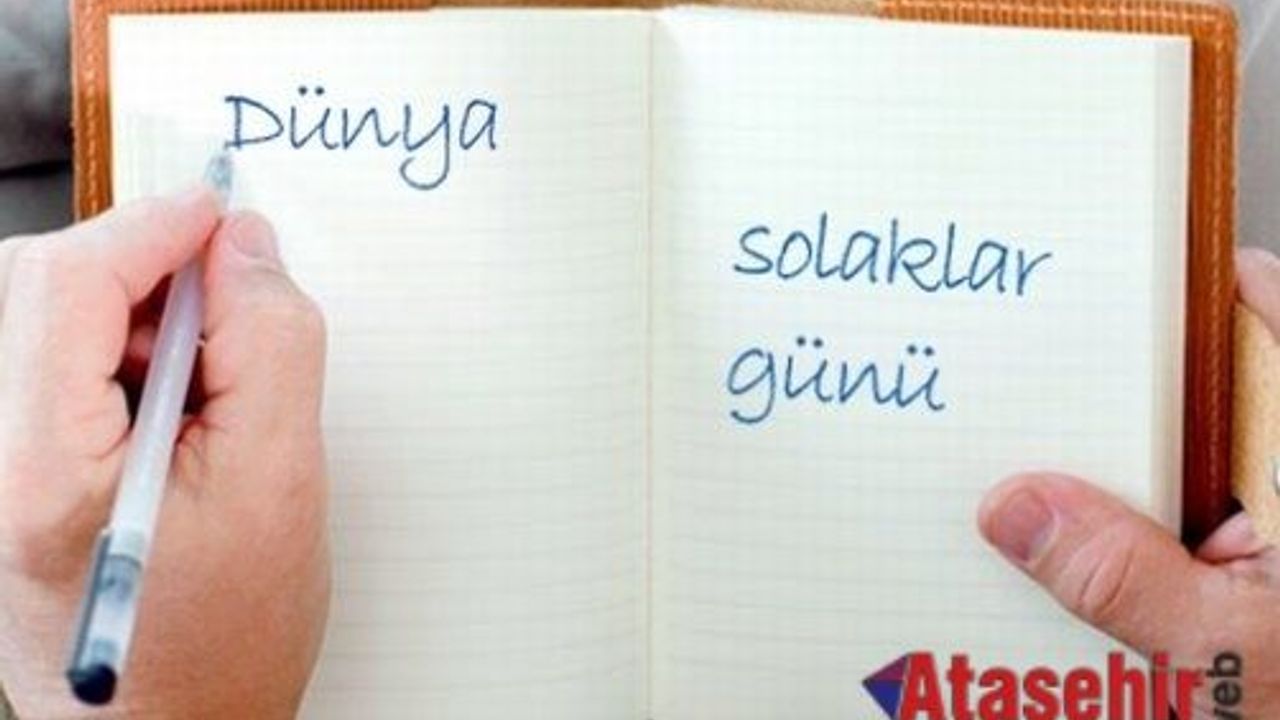 Dünya
solaklar
günü
Atasehir
web